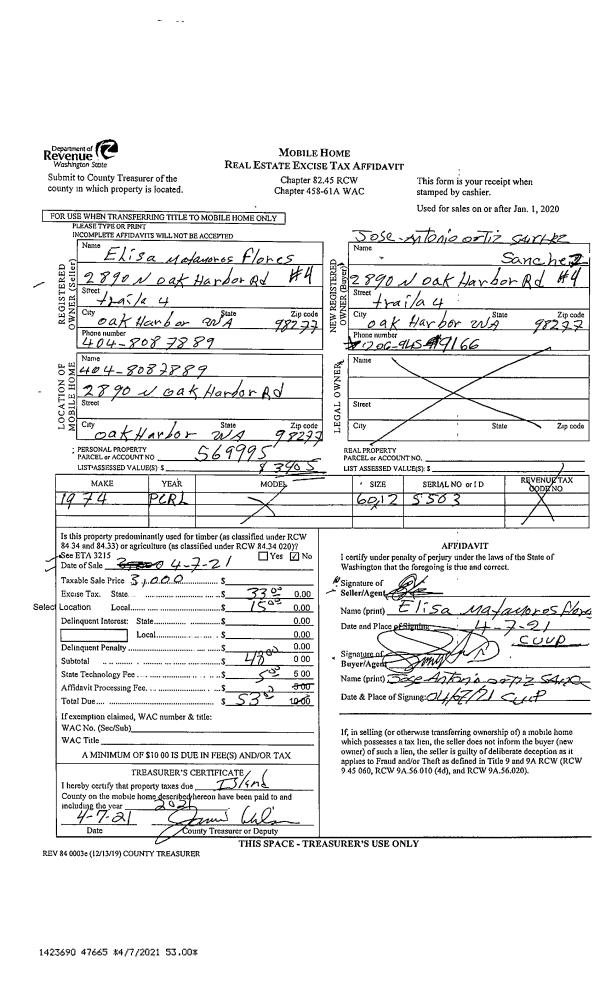 Department of
Revenue
Washington State
Submit to County Treasurer of the
county in which property is located.
MOBILE HOME
REAL ESTATE EXCISE TAX AFFIDAVIT
Chapter 82.45 RCW
Chapter 458-61A WAC
This form is your receipt when
stamped by cashier.
Used for sales on or after Jan. 1, 2020
FOR USE WHEN TRANSFERRING TITLE TO MOBILE HOME ONLY
PLEASE TYPE OR PRINT
INCOMPLETE AFFIDAVITS WILL NOT BE ACCEPTED
REGISTERED
OWNER (Seller)
Name
Elisa Matamoros Flores
2890 N Oak Harbor Rd #4
Street
traila 4
City State Zip code
Oak Harbor WA 98277
Phone number
404-8087889
NEW REGISTERED
OWNER (Buyer)
Jose Antonio ortiz
Name
Sanchez
2890 N oak Harbor Rd #4
Street
traila 4
City State Zip code
oak Harbor WA 98277
Phone number
9166
LOCATION OF
MOBILE HOME
Name
404-8087889
2890 N Oak Harbor Rd
Street
City State Zip code
oak Harbor WA 98277
LEGAL OWNER
Name
Street
City State Zip code
PERSONAL PROPERTY
PARCEL or ACCOUNT NO. 569995
LIST ASSESSED VALUE(S): $ 3905
REAL PROPERTY
PARCEL or ACCOUNT NO.
LIST ASSESSED VALUE(S): $
MAKE YEAR MODEL SIZE SERIAL NO or I D REVENUE TAX CODE NO
1974 PCRL 60,12 5503
Is this property predominantly used for timber (as classified under RCW
84 34 and 84.33) or agriculture (as classified under RCW 84.34 020)?
See ETA 3215 Yes No
Date of Sale 4-7-21
Taxable Sale Price 3,000 $
Excise Tax. State $ 33.00 0.00
Select Location Local $ 15.00 0.00
Delinquent Interest: State $ 0.00
Local $ 0.00
Delinquent Penalty $ 0.00
Subtotal $ 48.00 0 00
State Technology Fee $ 5.00 5 00
Affidavit Processing Fee $ 5 00
Total Due $ 53.00 10.00
If exemption claimed, WAC number & title:
WAC No. (Sec/Sub)
WAC Title
A MINIMUM OF $10 00 IS DUE IN FEE(S) AND/OR TAX
TREASURER'S CERTIFICATE
I hereby certify that property taxes due Island
County on the mobile home described hereon have been paid to and
including the year 2021
4-7-21
Date County Treasurer or Deputy
AFFIDAVIT
I certify under penalty of perjury under the laws of the State of
Washington that the foregoing is true and correct.
Signature of
Seller/Agent
Name (print) Elisa Matamoros Flores
Date and Place of Signing 4-7-21
CUUP
Signature of
Buyer/Agent
Name (print) Jose Antonio ortiz
Date & Place of Signing: 04/07/21 CUUP
If, in selling (or otherwise transferring ownership of) a mobile home
which possesses a tax lien, the seller does not inform the buyer (new
owner) of such a lien, the seller is guilty of deliberate deception as it
applies to Fraud and/or Theft as defined in Title 9 and 9A RCW (RCW
9 45 060, RCW 9A.56 010 (4d), and RCW 9A.56.020).
THIS SPACE - TREASURER'S USE ONLY
REV 84 0003e (12/13/19) COUNTY TREASURER
1423690 47665 *4/7/2021 53.00*